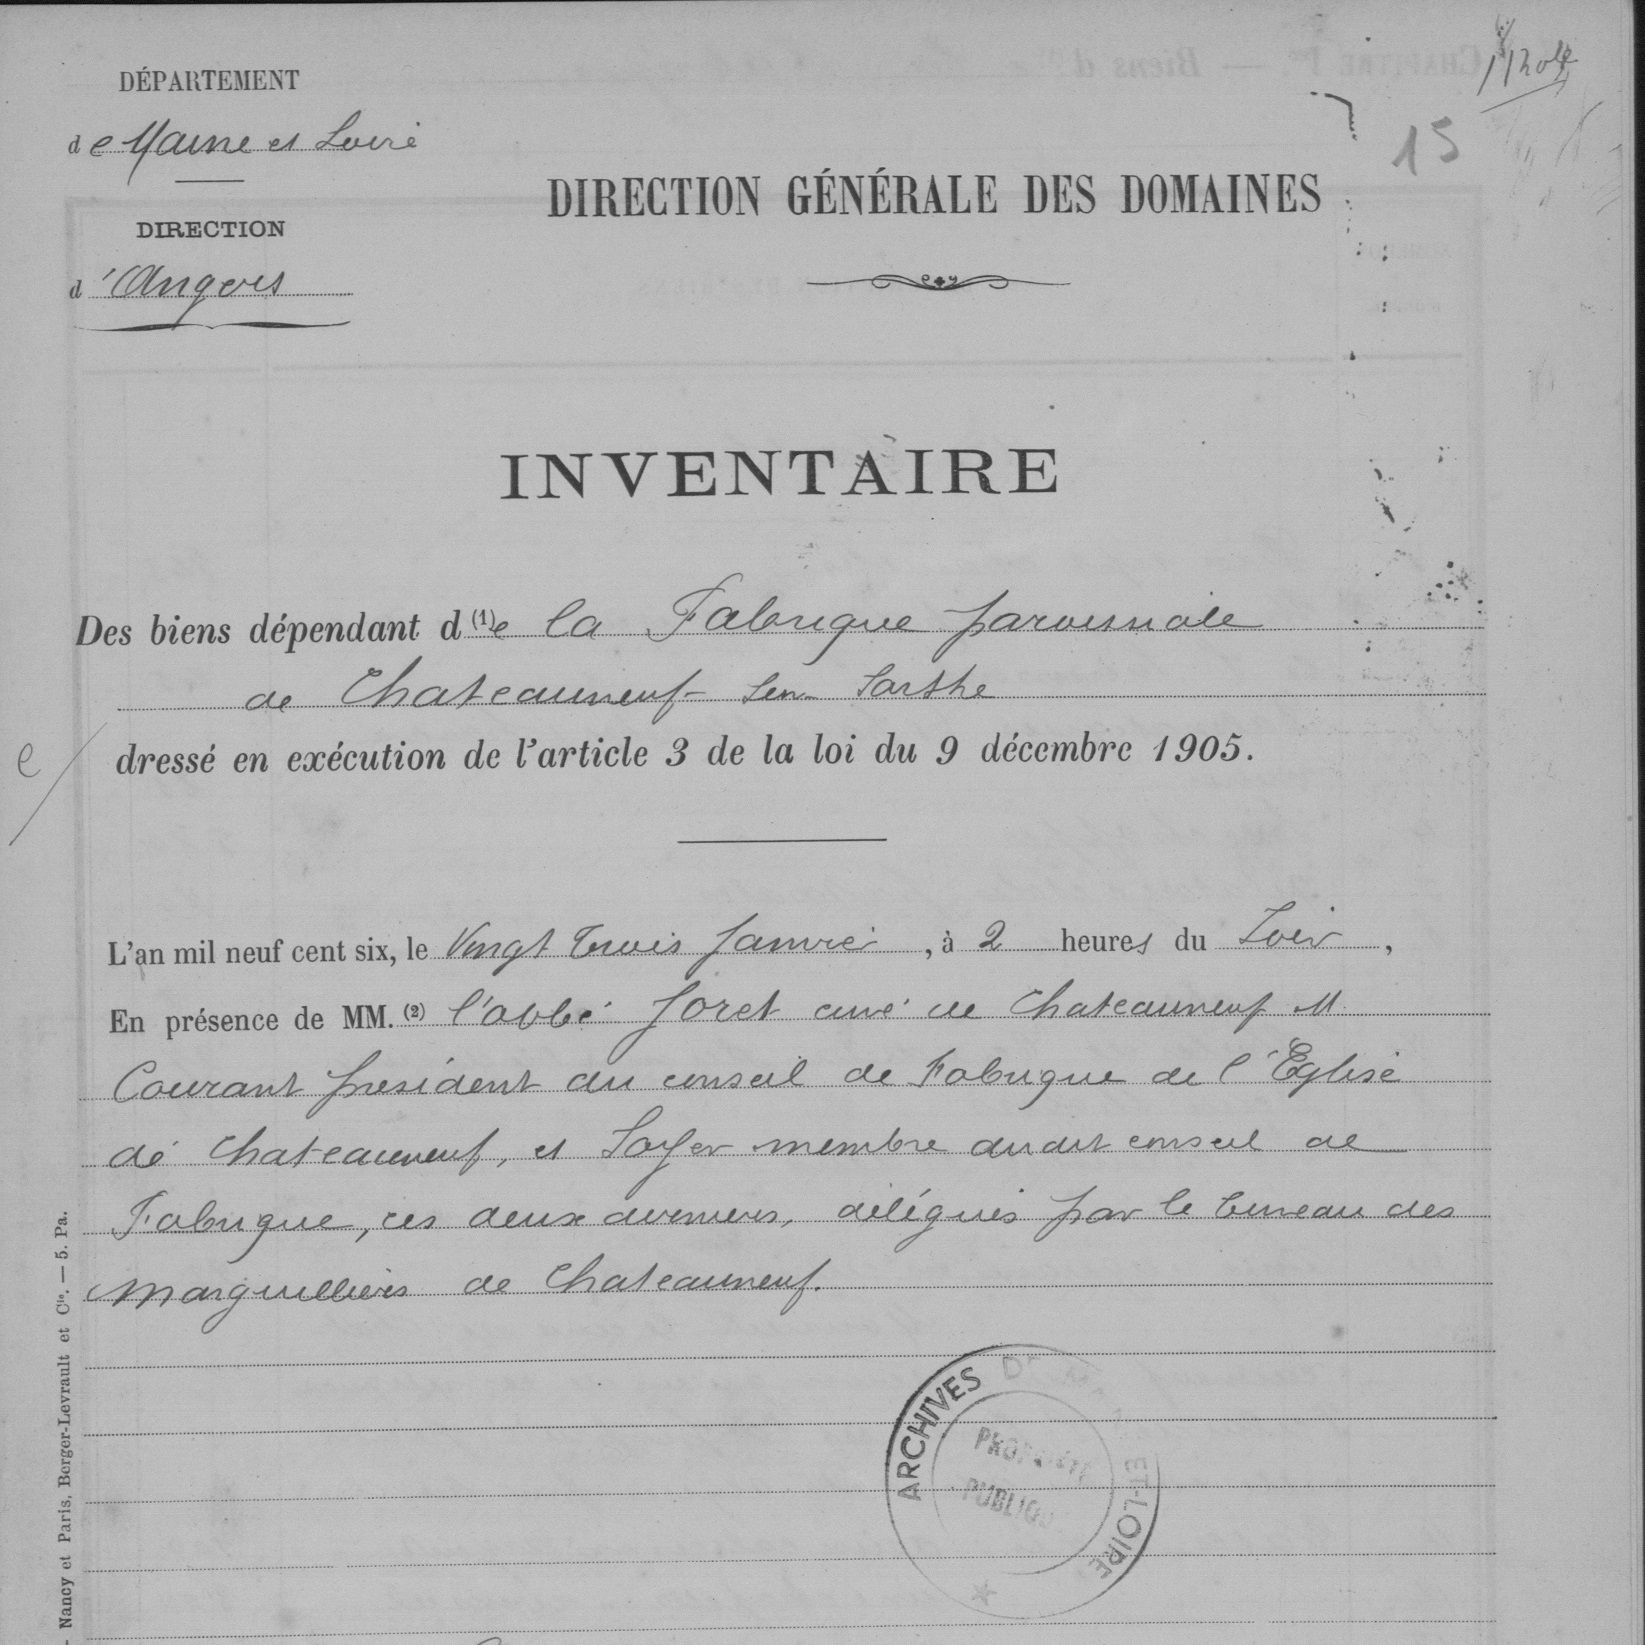 DÉPARTEMENT
de Maine et Loire
DIRECTION
d'Angers
15
DIRECTION GÉNÉRALE DES DOMAINES
INVENTAIRE
Des biens dépendant d(1)e la Fabrique paroissiale
de Chateauneuf sur Sarthe
e
dressé en exécution de l'article 3 de la loi du 9 décembre 1905.
L'an mil neuf cent six, le Vingt trois Janvier, à 2 heures du Soir,
En présence de MM. (2) l'abbé Joret curé de Chateauneuf M
Courant président du conseil de Fabrique de l'Église
de Chateauneuf, et Loyer membre dudit conseil de
Fabrique, ces deux derniers, délégués par le bureau des
Marguilliers de Chateauneuf.
ARCHIVES DE MAINE-ET-LOIRE
PROPRIÉTÉ
PUBLIQUE
Nancy et Paris, Berger-Levrault et Cie. — 5. Pa.